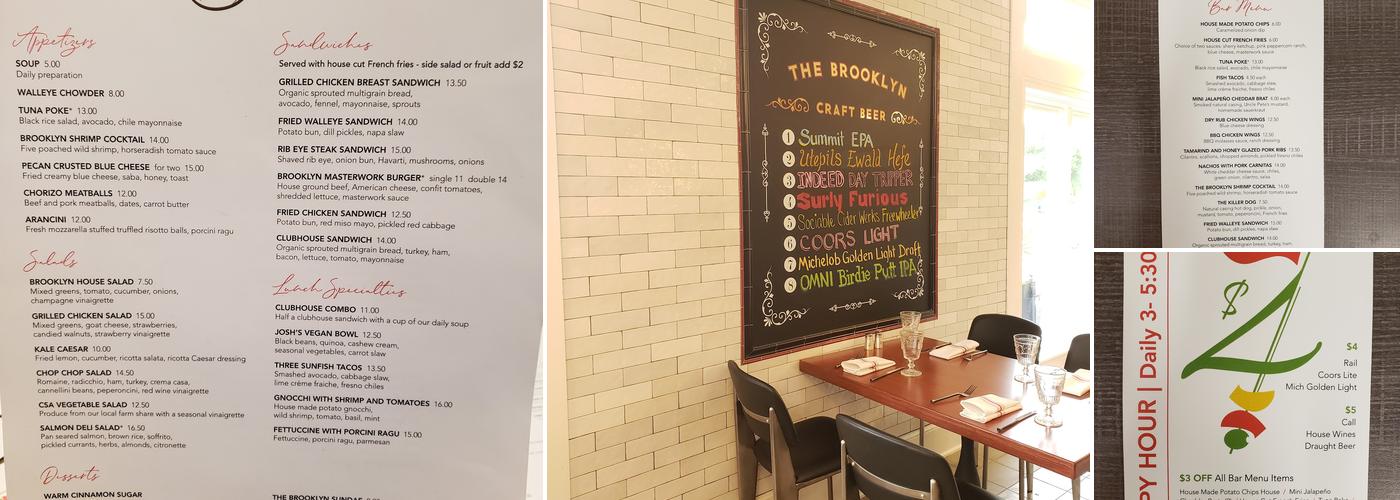 Appetizers
SOUP 5.00
Daily preparation
WALLEYE CHOWDER 8.00
TUNA POKE* 13.00
Black rice salad, avocado, chile mayonnaise
BROOKLYN SHRIMP COCKTAIL 14.00
Five poached wild shrimp, horseradish tomato sauce
PECAN CRUSTED BLUE CHEESE for two 15.00
Fried creamy blue cheese, saba, honey, toast
CHORIZO MEATBALLS 12.00
Beef and pork meatballs, dates, carrot butter
ARANCINI 12.00
Fresh mozzarella stuffed truffled risotto balls, porcini ragu
Salads
BROOKLYN HOUSE SALAD 7.50
Mixed greens, tomato, cucumber, onions,
champagne vinaigrette
GRILLED CHICKEN SALAD 15.00
Mixed greens, goat cheese, strawberries,
candied walnuts, strawberry vinaigrette
KALE CAESAR 10.00
Fried lemon, cucumber, ricotta salata, ricotta Caesar dressing
CHOP CHOP SALAD 14.50
Romaine, radicchio, ham, turkey, crema casa,
cannellini beans, peperoncini, red wine vinaigrette
CSA VEGETABLE SALAD 12.50
Produce from our local farm share with a seasonal vinaigrette
SALMON DELI SALAD* 16.50
Pan seared salmon, brown rice, soffrito,
pickled currants, herbs, almonds, citronette
Desserts
WARM CINNAMON SUGAR
Sandwiches
Served with house cut French fries - side salad or fruit add $2
GRILLED CHICKEN BREAST SANDWICH 13.50
Organic sprouted multigrain bread,
avocado, fennel, mayonnaise, sprouts
FRIED WALLEYE SANDWICH 14.00
Potato bun, dill pickles, napa slaw
RIB EYE STEAK SANDWICH 15.00
Shaved rib eye, onion bun, Havarti, mushrooms, onions
BROOKLYN MASTERWORK BURGER* single 11 double 14
House ground beef, American cheese, confit tomatoes,
shredded lettuce, masterwork sauce
FRIED CHICKEN SANDWICH 12.50
Potato bun, red miso mayo, pickled red cabbage
CLUBHOUSE SANDWICH 14.00
Organic sprouted multigrain bread, turkey, ham,
bacon, lettuce, tomato, mayonnaise
Lunch Specialties
CLUBHOUSE COMBO 11.00
Half a clubhouse sandwich with a cup of our daily soup
JOSH'S VEGAN BOWL 12.50
Black beans, quinoa, cashew cream,
seasonal vegetables, carrot slaw
THREE SUNFISH TACOS 13.50
Smashed avocado, cabbage slaw,
lime crème fraiche, fresno chiles
GNOCCHI WITH SHRIMP AND TOMATOES 16.00
House made potato gnocchi,
wild shrimp, tomato, basil, mint
FETTUCCINE WITH PORCINI RAGU 15.00
Fettuccine, porcini ragu, parmesan
THE BROOKLYN SUNDAE
THE BROOKLYN
CRAFT BEER
1 Summit EPA
2 Utepils Ewald Hefe
3 INDEED DAY TRIPPER
4 Surly Furious
5 Sociable Cider Werks Freewheeler
6 COORS LIGHT
7 Michelob Golden Light Draft
8 OMNI Birdie Putt IPA
Bar Menu
HOUSE MADE POTATO CHIPS 6.00
Caramelized onion dip
HOUSE CUT FRENCH FRIES 6.00
Choice of two sauces: sherry ketchup, pink peppercorn ranch,
blue cheese, masterwork sauce
TUNA POKE* 13.00
Black rice salad, avocado, chile mayonnaise
FISH TACOS 4.50 each
Smashed avocado, cabbage slaw,
lime crème fraiche, fresno chiles
MINI JALAPEÑO CHEDDAR BRAT 6.00 each
Smoked natural casing, Uncle Pete's mustard,
homemade sauerkraut
DRY RUB CHICKEN WINGS 12.50
Blue cheese dressing
BBQ CHICKEN WINGS 12.50
BBQ molasses sauce, ranch dressing
TAMARIND AND HONEY GLAZED PORK RIBS 13.50
Cilantro, scallions, chopped almonds, pickled fresno chiles
NACHOS WITH PORK CARNITAS 14.00
White cheddar cheese sauce, chiles,
green onion, cilantro, salsa
THE BROOKLYN SHRIMP COCKTAIL 14.00
Five poached wild shrimp, horseradish tomato sauce
THE KILLER DOG 7.50
Natural casing hot dog, pickle, onion,
mustard, tomato, peperoncini, French fries
FRIED WALLEYE SANDWICH 13.00
Potato bun, dill pickles, napa slaw
CLUBHOUSE SANDWICH 14.00
Organic sprouted multigrain bread, turkey, ham,
PY HOUR | Daily 3- 5:30
$
$4
Rail
Coors Lite
Mich Golden Light
$5
Call
House Wines
Draught Beer
$3 OFF All Bar Menu Items
House Made Potato Chips House / Mini Jalapeño